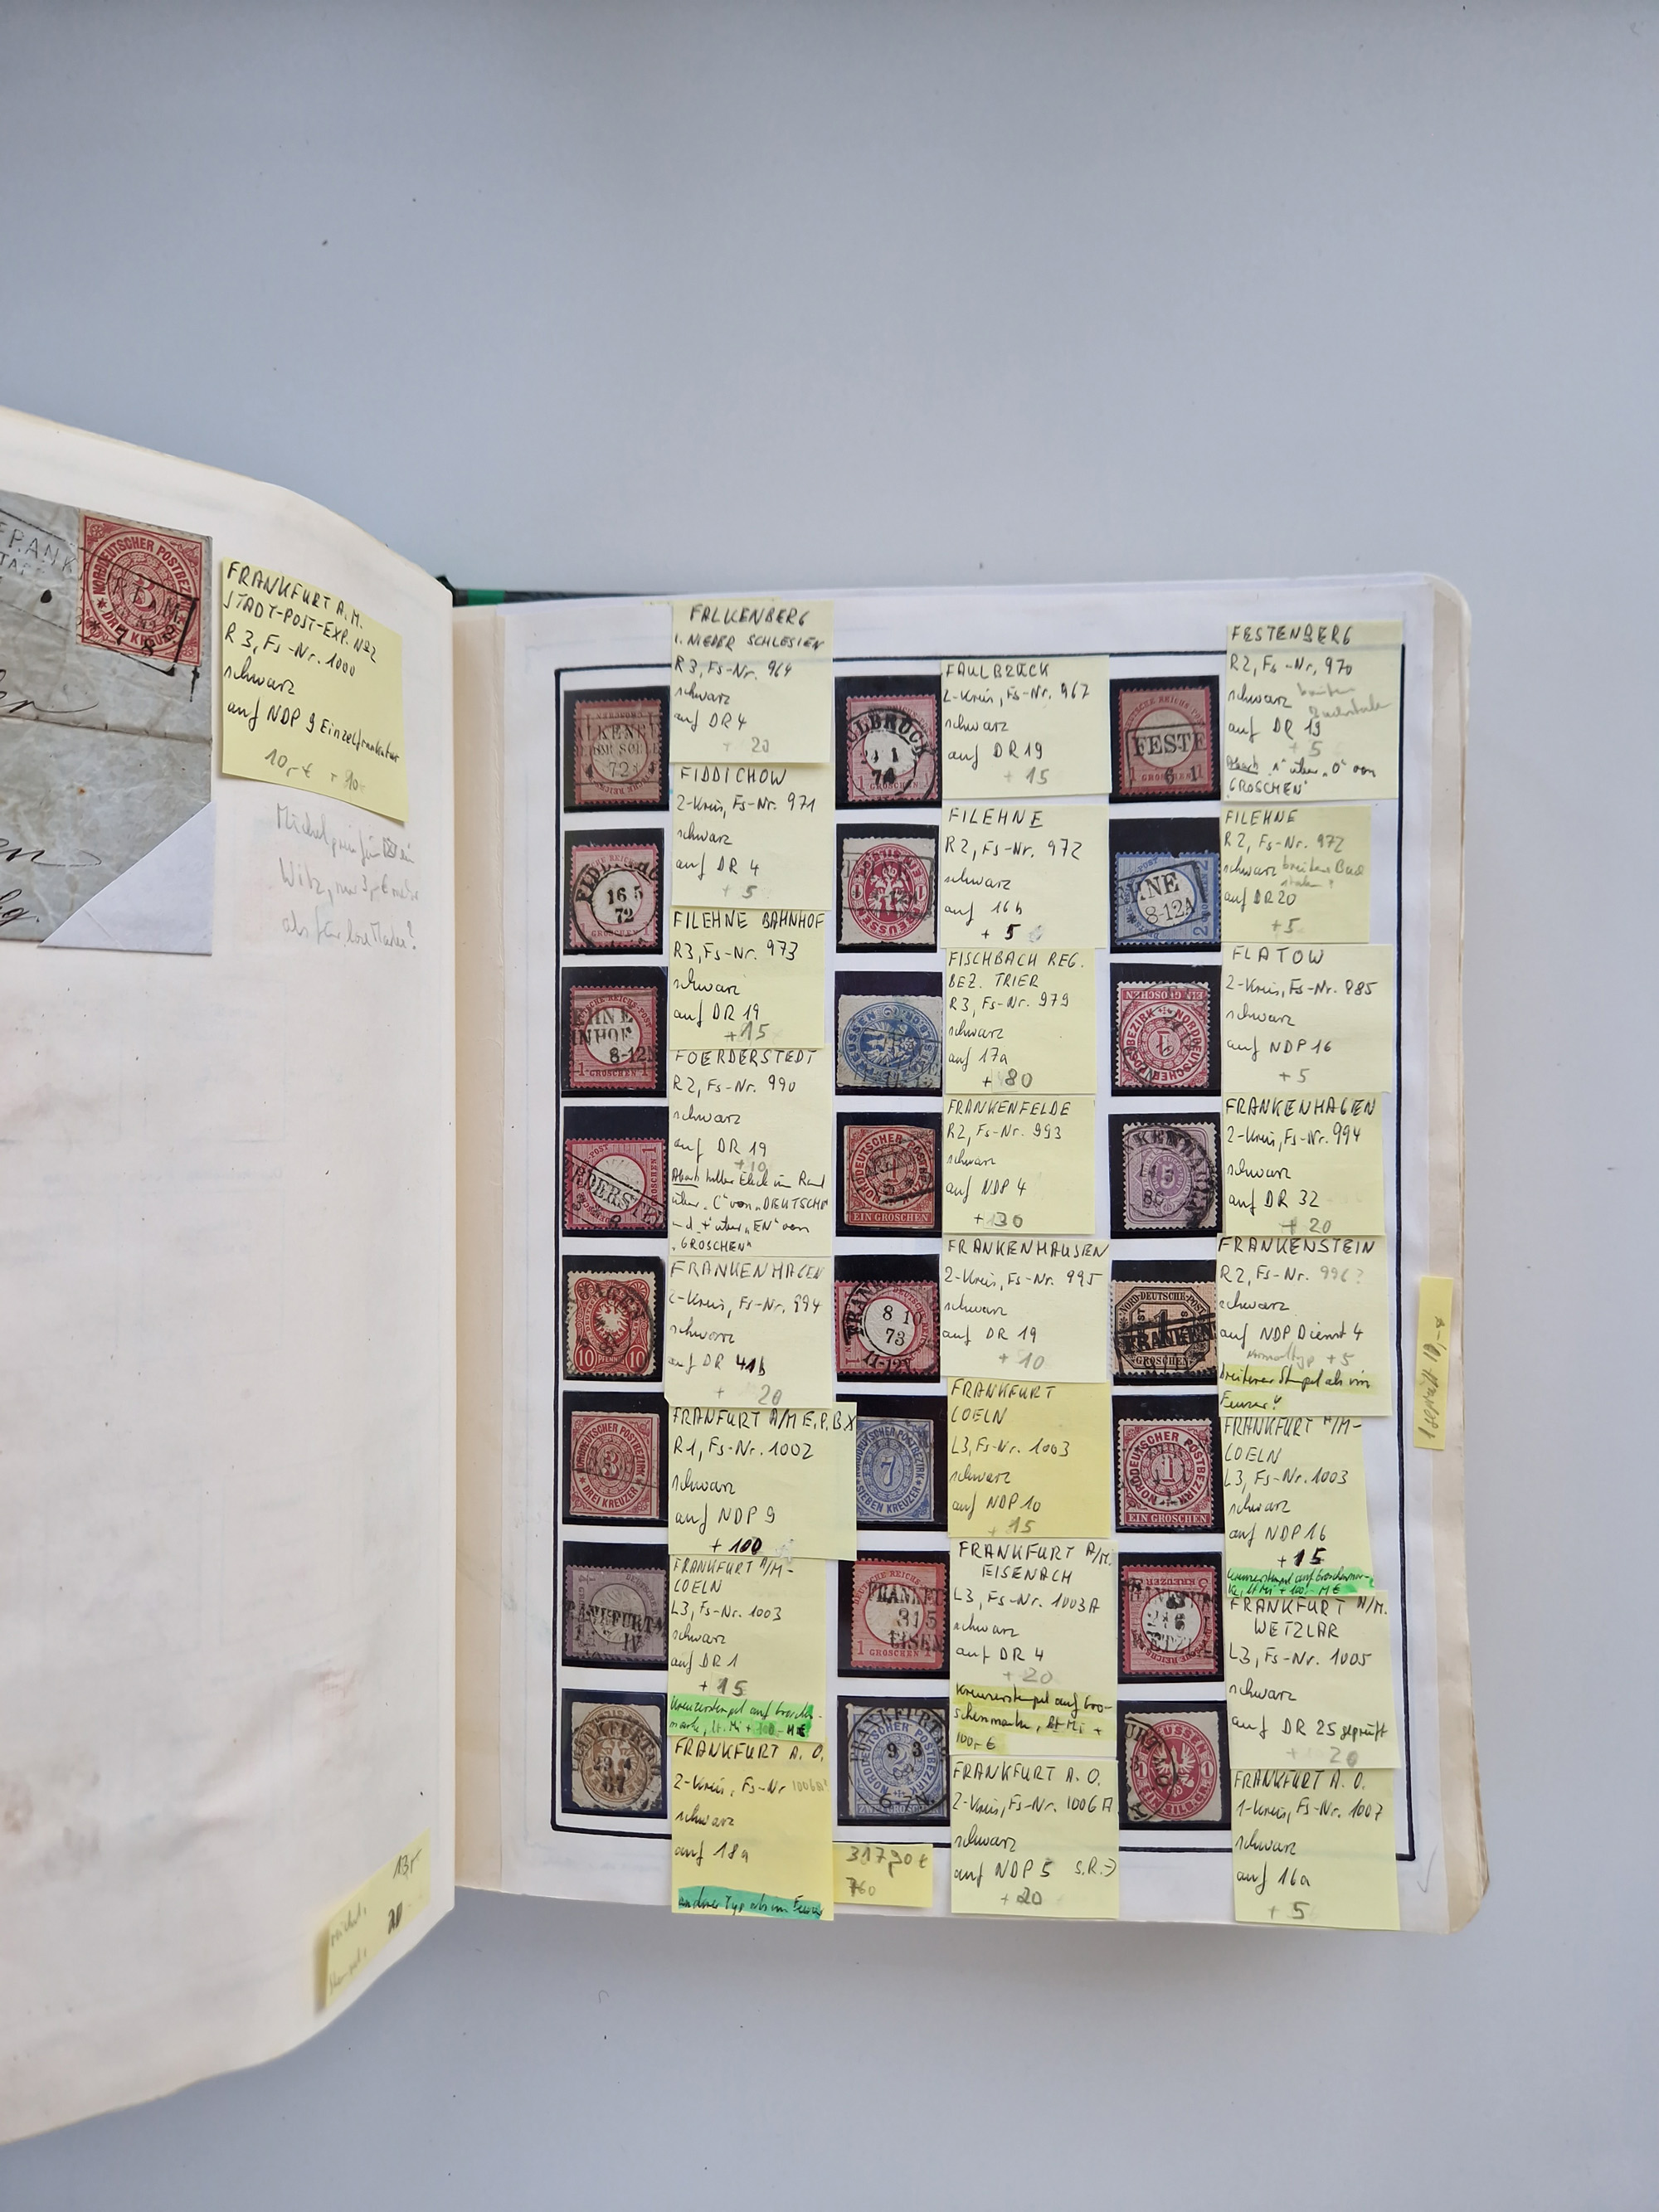 FRANKFURT A.M.
STADT-POST-EXP. No 2
R 3, Fs-Nr. 1000
schwarz
auf NDP 9 Einzelfrankatur
10,- €
NORDDEUTSCHER POSTBEZ
3
DREI KREUZER
FALKENBERG
i. NIEDER SCHLESIEN
R 3, Fs-Nr. 964
schwarz
auf DR 4
+ 20
FAULBRÜCK
2-Kreis, Fs-Nr. 967
schwarz
auf DR 19
+ 15
FESTENBERG
R2, Fs-Nr. 970
schwarz
auf DR 19
+ 5
"GROSCHEN"
FESTE
FIDDICHOW
2-Kreis, Fs-Nr. 971
schwarz
auf DR 4
+ 5
16 5
72
FILEHNE
R2, Fs-Nr. 972
schwarz
auf 16b
+ 5
FILEHNE
R2, Fs-Nr. 972
schwarz
auf DR 20
+5
EHNE
8-12A
FILEHNE BAHNHOF
R3, Fs-Nr. 973
schwarz
auf DR 19
+ 15
FISCHBACH REG.
BEZ. TRIER
R3, Fs-Nr. 979
schwarz
auf 17a
+ 80
FLATOW
2-Kreis, Fs-Nr. 885
schwarz
auf NDP 16
+ 5
FOERDERSTEDT
R2, Fs-Nr. 990
schwarz
auf DR 19
+10
über "C" von "DEUTSCHE"
über "EN" von
"GROSCHEN"
FRANKENFELDE
R2, Fs-Nr. 993
schwarz
auf NDP 4
+ 30
EIN GROSCHEN
FRANKENHAGEN
2-Kreis, Fs-Nr. 994
schwarz
auf DR 32
+ 20
FRANKENHAGEN
2-Kreis, Fs-Nr. 994
schwarz
auf DR 41b
+ 20
10 PFENNIG 10
FRANKENHAUSEN
2-Kreis, Fs-Nr. 995
schwarz
auf DR 19
+ 10
8 10
73
FRANKENSTEIN
R2, Fs-Nr. 996?
schwarz
auf NDP Dienst 4
Normaltyp +5
breiterer Stempel als im
Feuser!
FRANKEN
FRANFURT A/M E.P.B X
R1, Fs-Nr. 1002
schwarz
auf NDP 9
+ 100
DREI KREUZER
FRANKFURT
COELN
L3, Fs-Nr. 1003
schwarz
auf NDP 10
+ 15
7
SIEBEN KREUZER
FRANKFURT A/M-
COELN
L3, Fs-Nr. 1003
schwarz
auf NDP 16
+ 15
Kreuzerstempel auf Groschenmar-
ke, lt Mi + 100,- M€
EIN GROSCHEN
FRANKFURT A/M-
COELN
L3, Fs-Nr. 1003
schwarz
auf DR 1
+ 15
Kreuzerstempel auf Groschen-
marke, lt. Mi + 100,- M€
FRANKFURT A/M.
EISENACH
L3, Fs-Nr. 1003A
schwarz
auf DR 4
+ 20
Kreuzerstempel auf Gro-
schenmarke, lt Mi +
100,- €
FRANKFURT A/M.
WETZLAR
L3, Fs-Nr. 1005
schwarz
auf DR 25 geprüft
+ 20
FRANKFURT A. O.
2-Kreis, Fs-Nr
schwarz
auf 18a
anderer Typ als im Feuser
317,90 €
760
FRANKFURT A. O.
2-Kreis, Fs-Nr. 1006A
schwarz
auf NDP 5 S.R.→
+ 20
FRANKFURT A. O.
1-Kreis, Fs-Nr. 1007
schwarz
auf 16a
+ 5
20